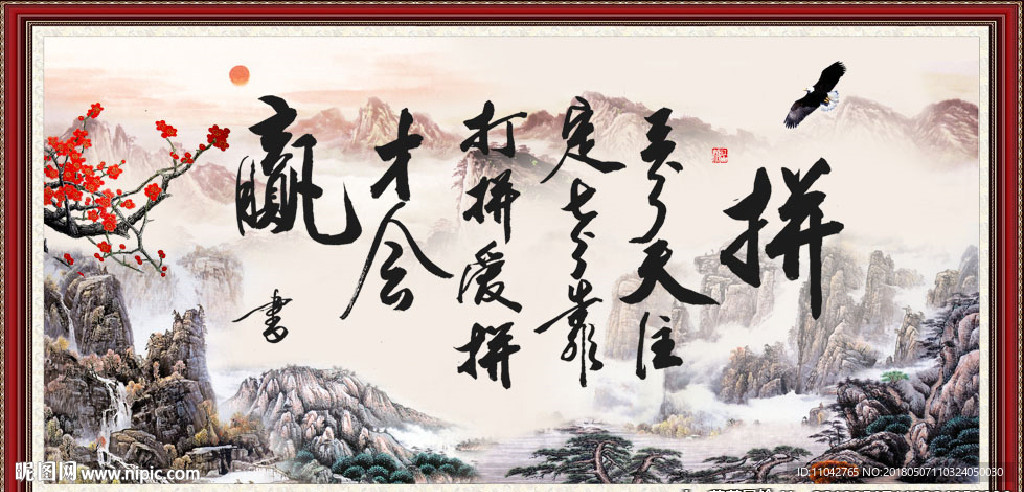 拼
三分天注
定七分靠
打拼爱拼
才会
赢
书
昵图网 www.nipic.com
ID:11042765 NO:20180507110324050030